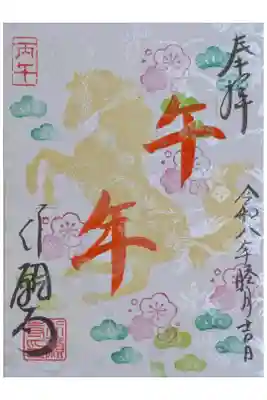 奉拝
令和八年睦月吉日
午年
丙午
行願寺